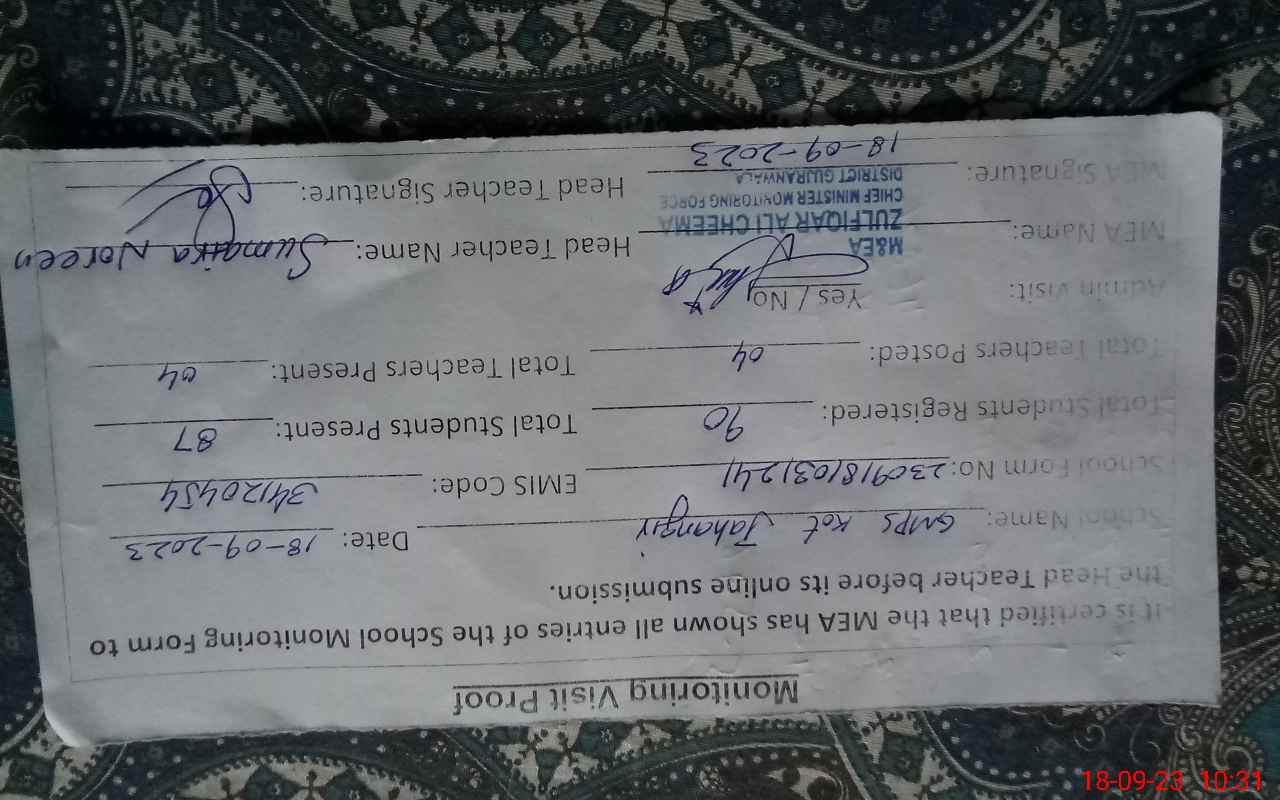 Monitoring Visit Proof
It is certified that the MEA has shown all entries of the School Monitoring Form to
the Head Teacher before its online submission.
School Name: GMPS Kot Jahangir Date: 18-09-2023
School Form No: 23091810312411 EMIS Code: 34120454
Total Students Registered: 90 Total Students Present: 87
Total Teachers Posted: 04 Total Teachers Present: 04
Admin Visit: Yes / No
MEA Name: Head Teacher Name: Sumaira Noreen
M&EA
ZULFIQAR ALI CHEEMA
CHIEF MINISTER MONITORING FORCE
DISTRICT GUJRANWALA
MEA Signature: Head Teacher Signature:
18-09-2023
18-09-23 10:31